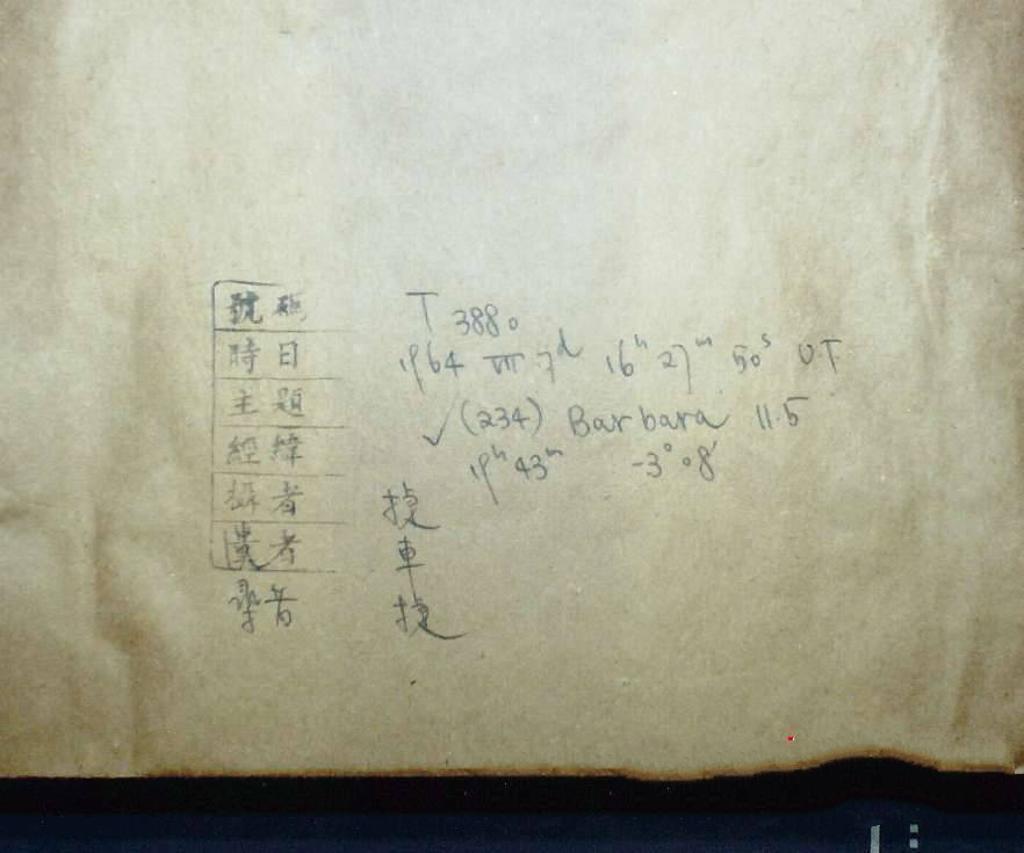 號碼 T 3880
時日 1964 VII 7ᵈ 16ʰ 27ᵐ 50ˢ UT
主題 ✓ (234) Barbara 11.5
經緯 19ʰ 43ᵐ -3°08'
攝者
者 車